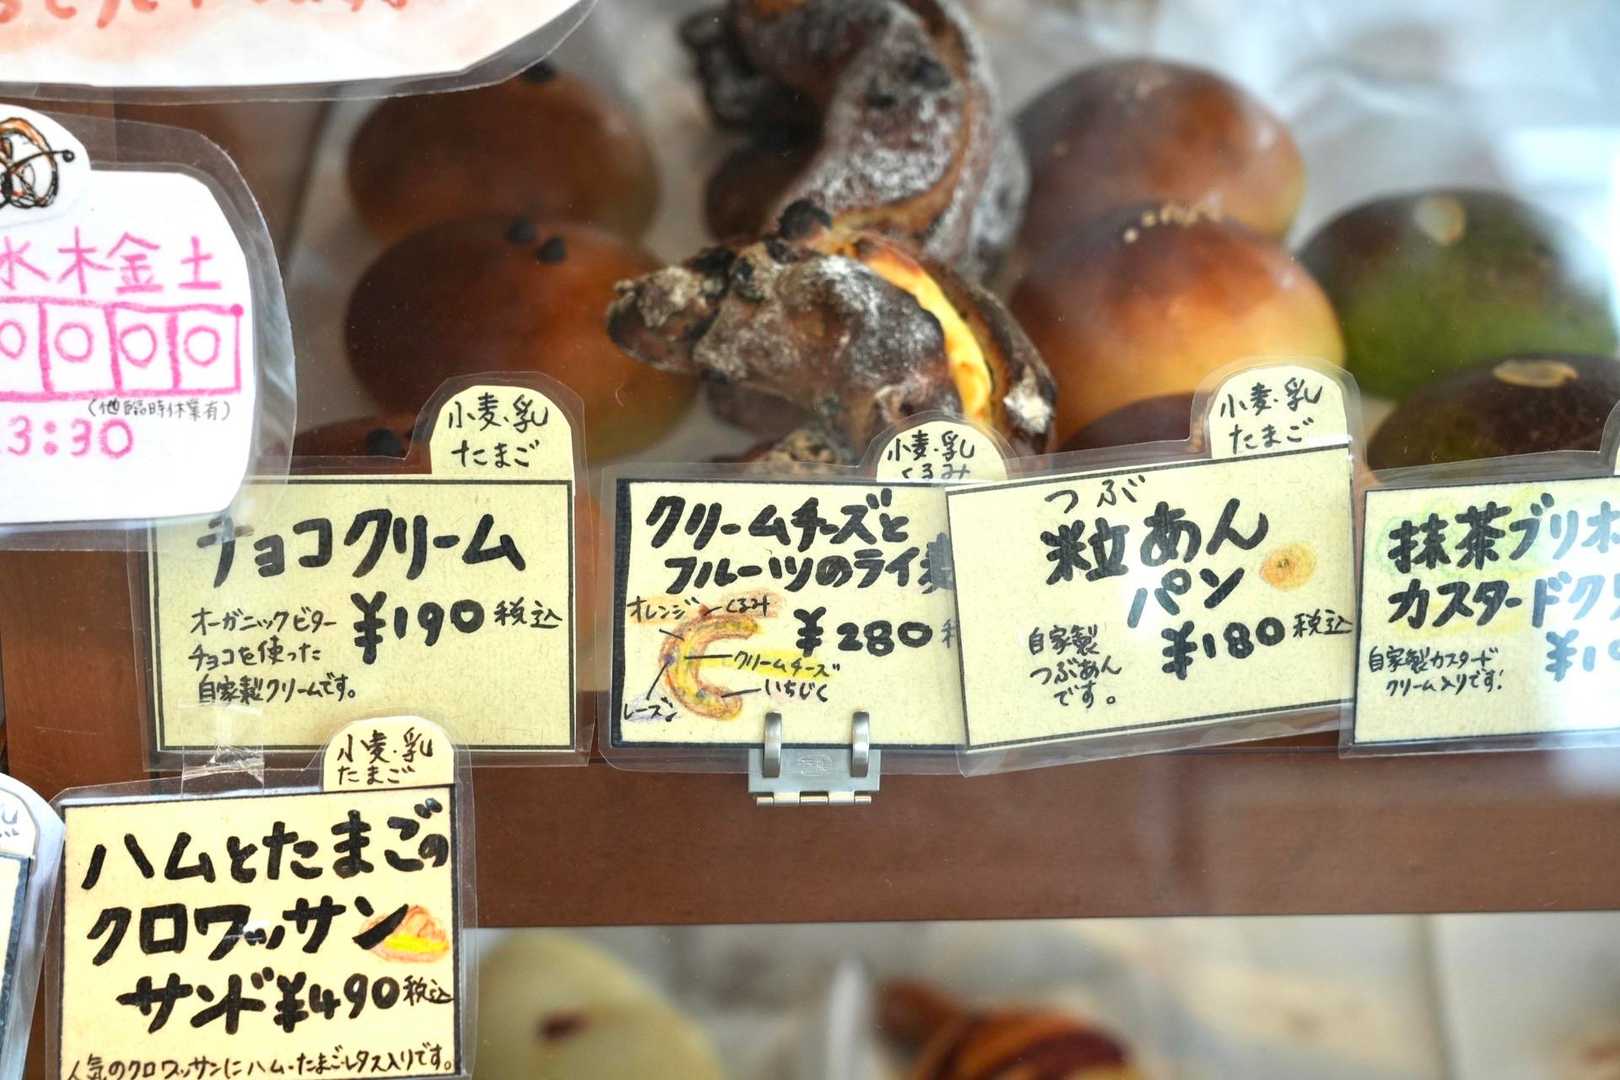 水木金土
(他臨時休業有)
3:30
小麦・乳
たまご
チョコクリーム
¥190 税込
オーガニックビター
チョコを使った
自家製クリームです。
小麦・乳
くるみ
クリームチーズと
フルーツのライ麦
¥280
オレンジ
くるみ
クリームチーズ
いちじく
レーズン
小麦・乳
たまご
つぶ
粒あん
パン
¥180 税込
自家製
つぶあん
です。
抹茶ブリオ
カスタードク
自家製カスタード
クリーム入りです!
小麦・乳
たまご
ハムとたまごの
クロワッサン
サンド ¥490 税込
人気のクロワッサンにハム・たまご・レタス入りです。